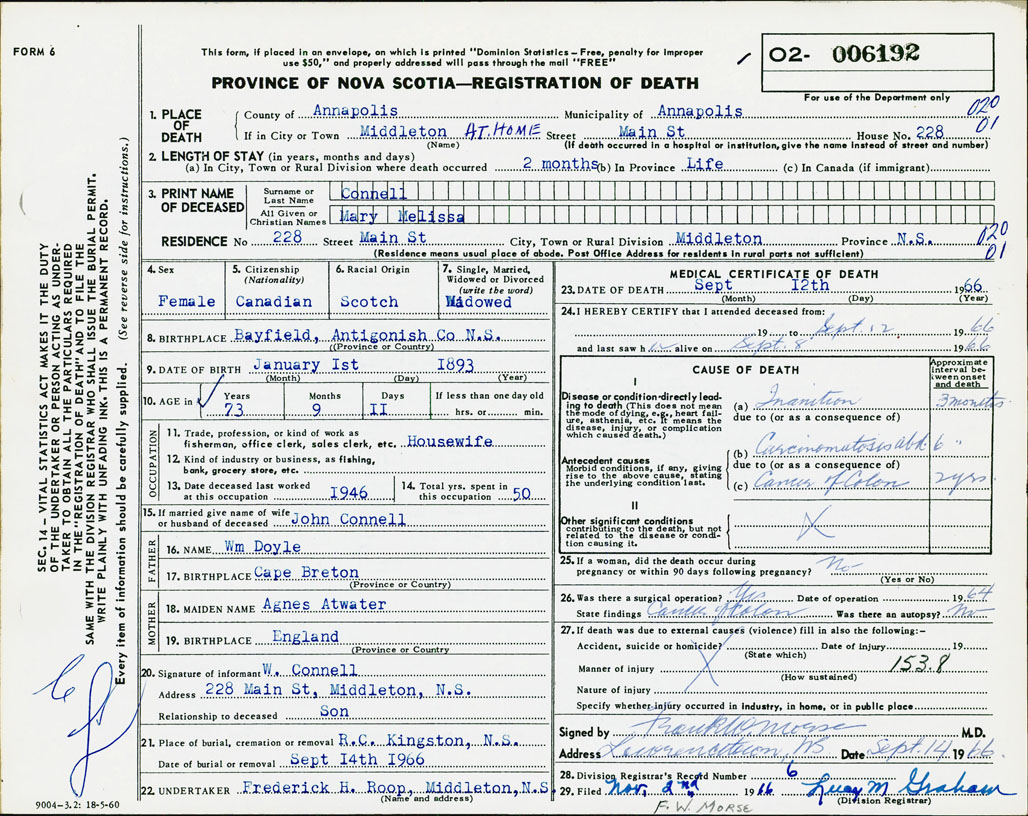 FORM 6
This form, if placed in an envelope, on which is printed "Dominion Statistics – Free, penalty for improper
use $50," and properly addressed will pass through the mail "FREE"
PROVINCE OF NOVA SCOTIA—REGISTRATION OF DEATH
O2- 006192
For use of the Department only
1. PLACE OF DEATH County of Annapolis Municipality of Annapolis 020
If in City or Town Middleton AT HOME Street Main St House No. 228 01
(Name) (If death occurred in a hospital or institution, give the name instead of street and number)
2. LENGTH OF STAY (in years, months and days)
(a) In City, Town or Rural Division where death occurred 2 months (b) In Province Life (c) In Canada (if immigrant)
3. PRINT NAME OF DECEASED
Surname or Last Name Connell
All Given or Christian Names Mary Melissa
RESIDENCE No 228 Street Main St City, Town or Rural Division Middleton Province N.S. 020
01
(Residence means usual place of abode. Post Office Address for residents in rural parts not sufficient)
4. Sex
Female
5. Citizenship
(Nationality)
Canadian
6. Racial Origin
Scotch
7. Single, Married,
Widowed or Divorced
(write the word)
Widowed
8. BIRTHPLACE Bayfield, Antigonish Co N.S.
(Province or Country)
9. DATE OF BIRTH January Ist I893
(Month) (Day) (Year)
10. AGE in
Years Months Days If less than one day old
73 9 II hrs. or min.
OCCUPATION
11. Trade, profession, or kind of work as
fisherman, office clerk, sales clerk, etc. Housewife
12. Kind of industry or business, as fishing,
bank, grocery store, etc.
13. Date deceased last worked
at this occupation I946
14. Total yrs. spent in
this occupation 50
15. If married give name of wife
or husband of deceased John Connell
FATHER
16. NAME Wm Doyle
17. BIRTHPLACE Cape Breton
(Province or Country)
MOTHER
18. MAIDEN NAME Agnes Atwater
19. BIRTHPLACE England
(Province or Country)
20. Signature of informant W. Connell
Address 228 Main St, Middleton, N.S.
Relationship to deceased Son
21. Place of burial, cremation or removal R.C. Kingston, N.S.
Date of burial or removal Sept I4th I966
22. UNDERTAKER Frederick H. Roop, Middleton, N.S
(Name and address)
MEDICAL CERTIFICATE OF DEATH
23. DATE OF DEATH Sept I2th 1966
(Month) (Day) (Year)
24. I HEREBY CERTIFY that I attended deceased from:
19 to Sept. 12 1966
and last saw h alive on Sept. 8 1966
CAUSE OF DEATH
Approximate
interval be-
tween onset
and death
I
Disease or condition directly lead-
ing to death (This does not mean
the mode of dying, e.g., heart fail-
ure, asthenia, etc. It means the
disease, injury, or complication
which caused death.)
(a) Inanition 3 months
due to (or as a consequence of)
(b) Carcinomatosis abd. 6 "
Antecedent causes
Morbid conditions, if any, giving
rise to the above cause, stating
the underlying condition last.
due to (or as a consequence of)
(c) Cancer of Colon 2 yrs
II
Other significant conditions
contributing to the death, but not
related to the disease or condi-
tion causing it.
X
25. If a woman, did the death occur during
pregnancy or within 90 days following pregnancy? No
(Yes or No)
26. Was there a surgical operation? Yes Date of operation 1964
State findings Cancer of Colon Was there an autopsy? No
27. If death was due to external causes (violence) fill in also the following:–
Accident, suicide or homicide? Date of injury 19
(State which)
Manner of injury 153.8
(How sustained)
Nature of injury
Specify whether injury occurred in industry, in home, or in public place
Signed by Frank W. Morse M.D.
Address Lawrencetown, NS Date Sept. 14 1966
28. Division Registrar's Record Number 6
29. Filed Nov. 2nd 1966 Lucy M Graham
(Division Registrar)
F. W. MORSE
SEC. 14 – VITAL STATISTICS ACT MAKES IT THE DUTY
OF THE UNDERTAKER OR PERSON ACTING AS UNDER-
TAKER TO OBTAIN ALL THE PARTICULARS REQUIRED
IN THE "REGISTRATION OF DEATH" AND TO FILE THE
SAME WITH THE DIVISION REGISTRAR WHO SHALL ISSUE THE BURIAL PERMIT.
WRITE PLAINLY WITH UNFADING INK. THIS IS A PERMANENT RECORD.
Every item of information should be carefully supplied. (See reverse side for instructions.)
9004-3.2: 18-5-60